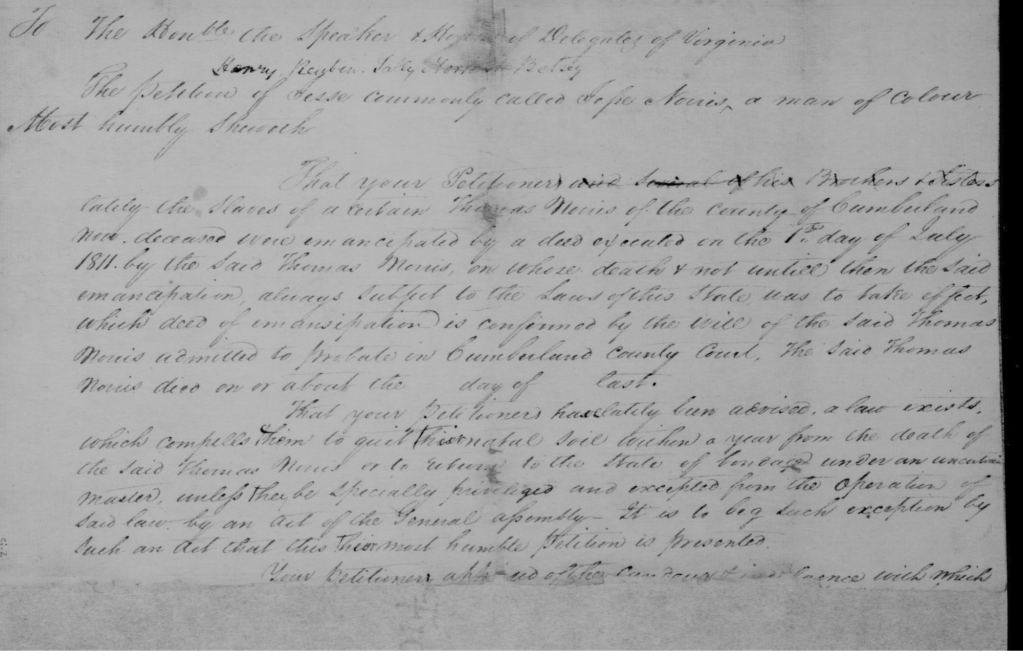 To The Honble the Speaker & House of Delegates of Virginia
Henry, Reuben, Sally Betsy
The Petition of Jesse commonly called Jesse Norris, a man of colour
Most humbly Sheweth
That your Petitioners and several of his Brothers & Sisters
lately the Slaves of a certain Thomas Norris of the county of Cumberland
now deceased were emancipated by a deed executed on the 1st day of July
1811. by the said Thomas Norris, on whose death & not untill then the said
emancipation, always subject to the Laws of this State was to take effect,
which deed of emansipation is confirmed by the will of the said Thomas
Norris admitted to probate in Cumberland county Court, the said Thomas
Norris died on or about the day of last.
That your Petitioners have lately been advised, a law exists,
which compells them to quit their natal soil within a year from the death of
the said Thomas Norris or to return to the State of bondage under an uncertain
master, unless they be specially priviliged and excepted from the operation of
said law by an act of the General assembly - It is to beg such exception by
such an Act that this their most humble Petition is presented.
Your Petitioners of the candour & with which